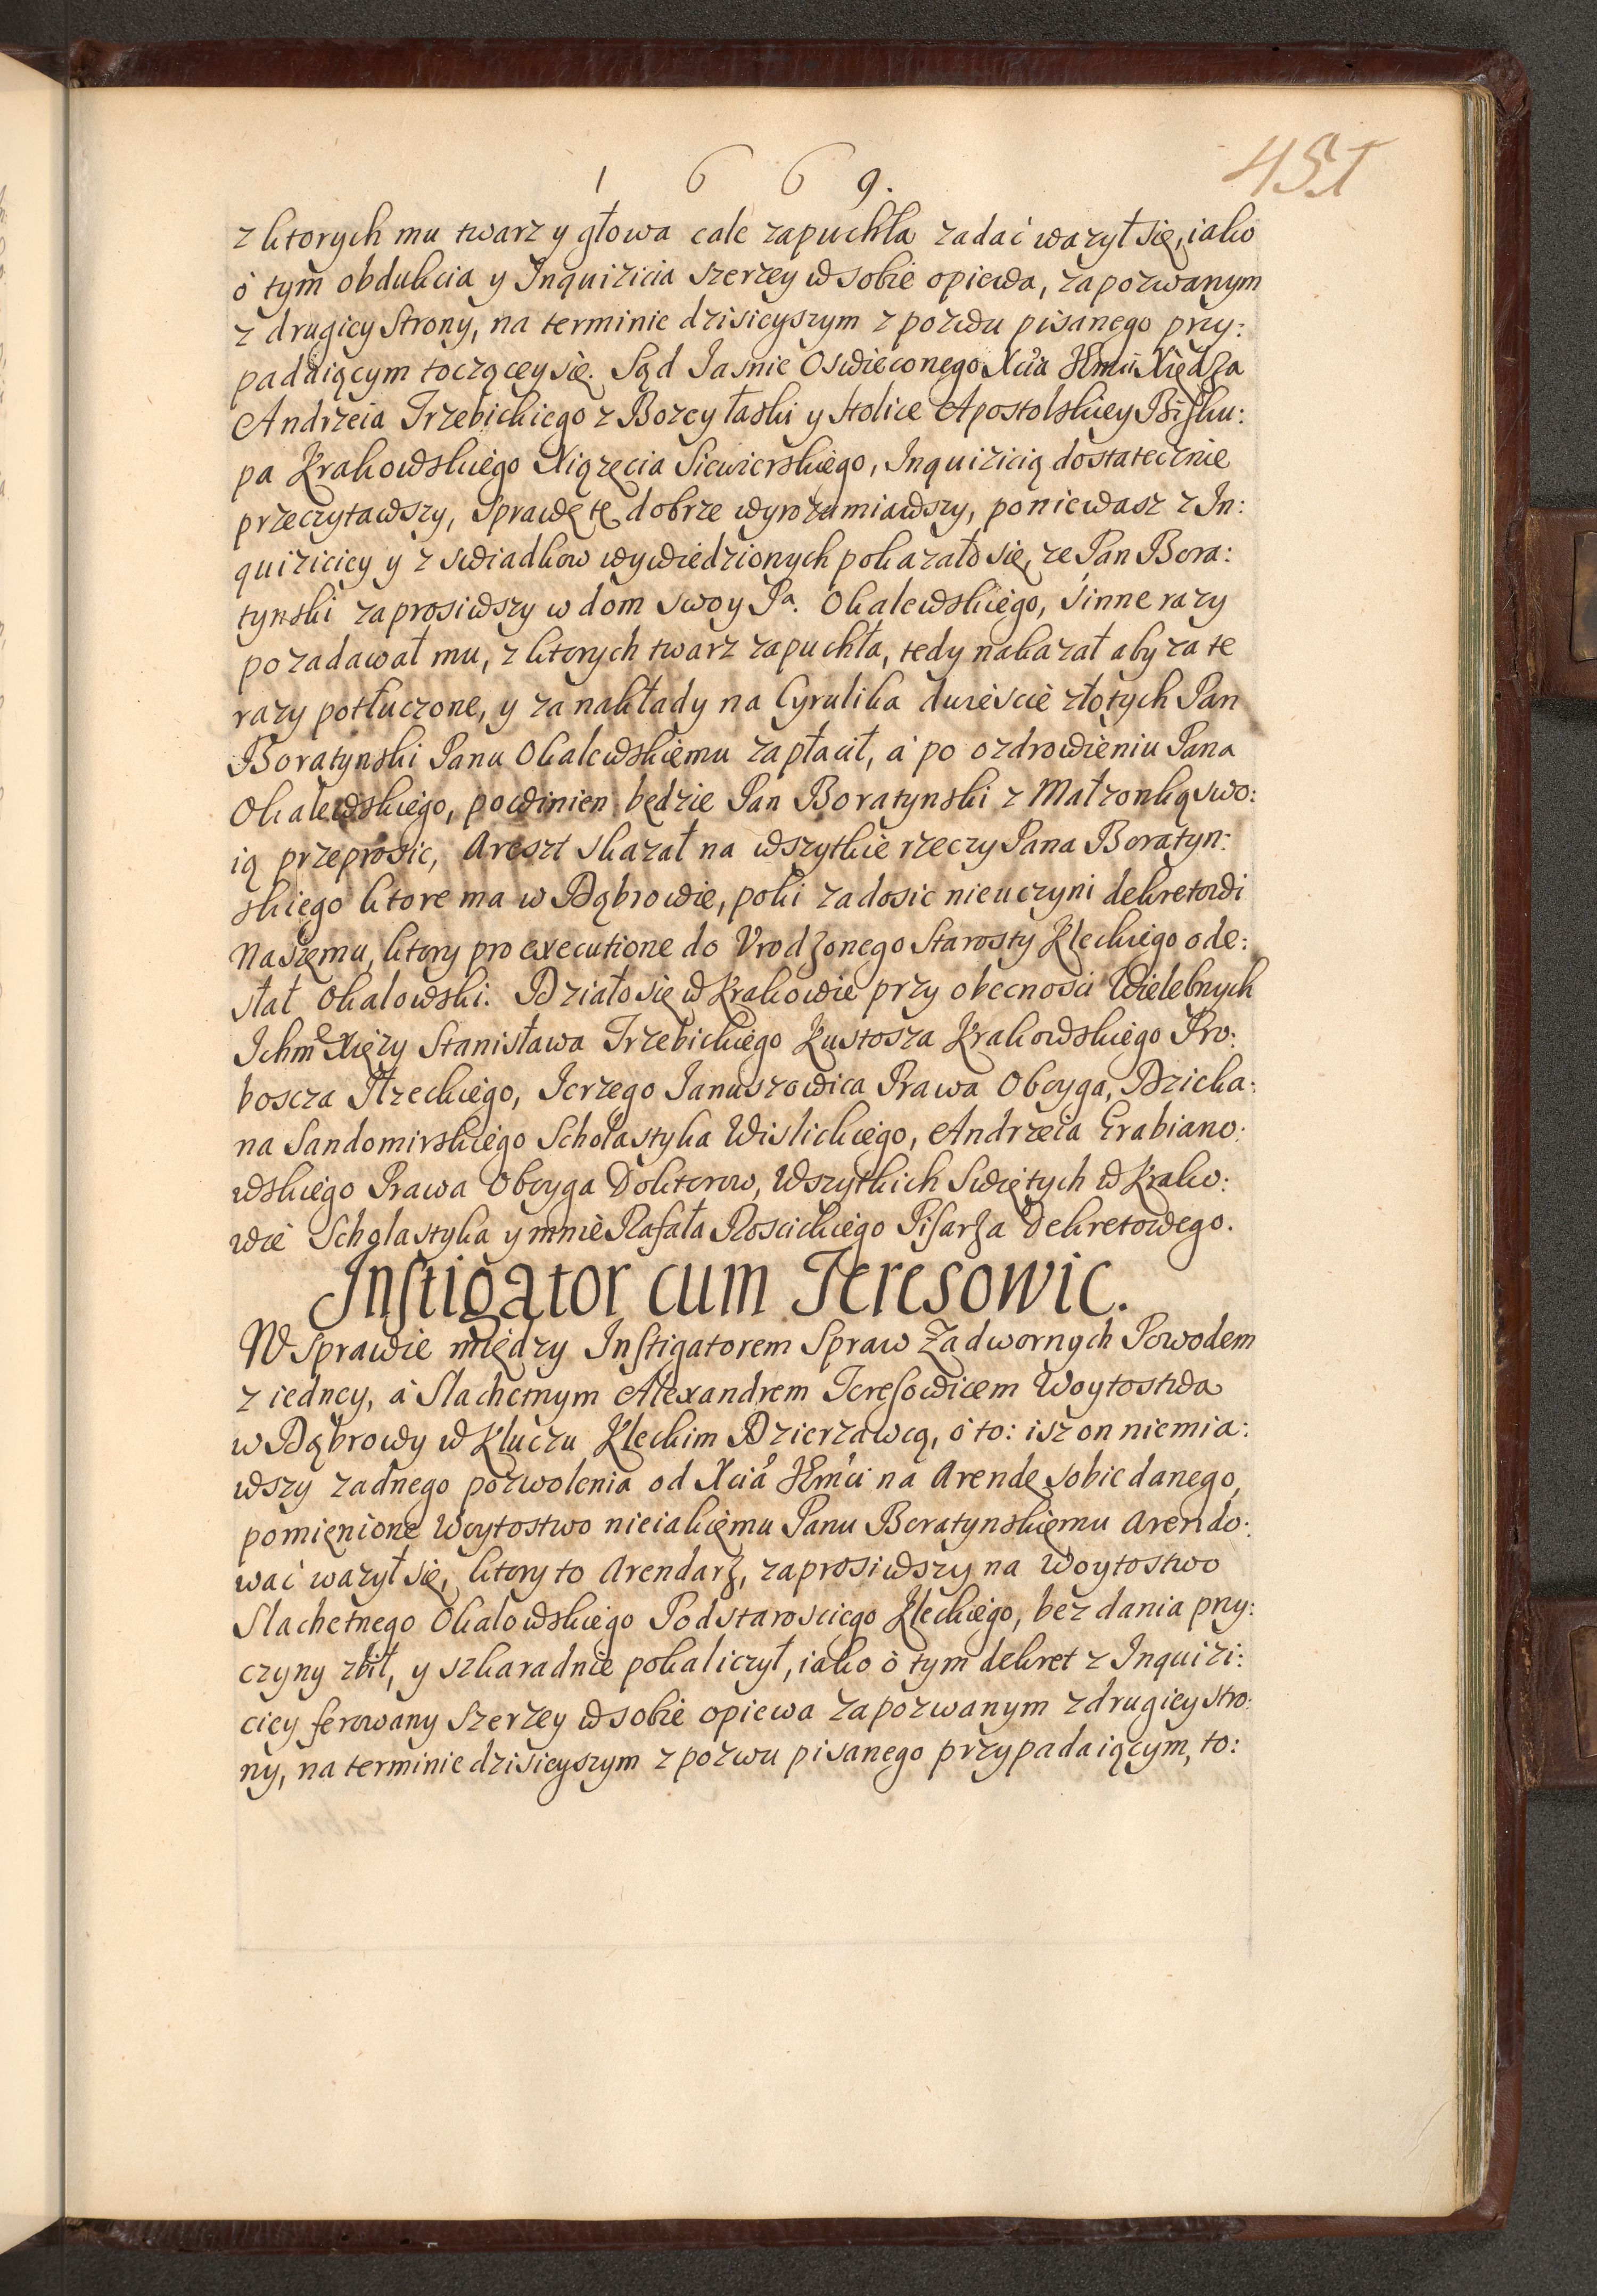 1669.
451
z ktorych mu twarz y głowa cale zapuchła zadać ważył się, iako
ò tym obdukcia y Inquizicia szerzey w sobie opiewa, zapozwanym
z drugiey Strony, na terminie dzisieyszym z pozwu pisanego przy:
padaiącym toczącey się. Sąd Jasnie Oswieconego Xcia Jłmci Xiędza
Andrzeia Trzebickiego z Bozey łaski y Stolice Apostolskiey Bisku:
pa Krakowskiego Xiązęcia Siewierskiego, Inquizicią dostatecznie
przeczytawszy, Sprawę tę dobrze wyrozumiawszy, poniewasz z In:
quiziciey y z swiadkow wywiedzionych pokazało się, ze Pan Bora:
tynski zaprosiwszy w dom swoy Pa. Okalewskiego, sinne razy
pozadawał mu, z ktorych twarz zapuchła, tedy nakazał aby za te
razy potłuczone, y za nakłady na Cyrulika dwieście złotych Pan
Boratynski Panu Okalewskiemu zapłacił, à po ozdrowieniu Pana
Okalewskiego, powinien będzie Pan Boratynski z Małzonką swo:
ią przeprosic, Areszt skazał na wszytkie rzeczy Pana Boratyn:
skiego ktore ma w Dąbrowie, poki zadosic nieuczyni dekretowi
naszemu, ktory pro executione do Vrodzonego Starosty Kleckiego ode:
słał Okalowski. Działo się w Krakowie przy obecnosci Wielebnych
Ichm Xięzy Stanisława Trzebickiego Kustosza Krakowskiego Pro:
boscza Jłzeckiego, Jerzego Januszowica Prawa Oboyga, Dzieka:
na Sandomirskiego Scholastyka Wislickiego, Andrzeia Grabiano:
wskiego Prawa Oboyga Doktorow, Wszytkich Swiętych w Krako:
wie Scholastyka y mnie Rafała Roscickiego Pisarza Dekretowego.
Instigator cum Teresowic.
W Sprawie między Instigatorem Spraw Zadwornych Powodem
z iedney, à Slachetnym Alexandrem Teresowicem Woytostwa
w Dąbrowy w Kluczu Kleckim Dzierzawcą, ò to: isz on niemia:
wszy zadnego pozwolenia od Xcia Jłmci na Arendę sobie danego,
pomienione Woytostwo nieiakiemu Panu Boratynskiemu Arendo:
wać ważył się, ktory to Arendarz, zaprosiwszy na Woytostwo
Slachetnego Okalowskiego Podstarosciego Kleckiego, bez dania przy:
czyny zbił, y szkaradnie pokaliczył, iako ò tym dekret z Inquizi:
ciey ferowany szerzey w sobie opiewa zapozwanym z drugiey stro:
ny, na terminie dzisieyszym z pozwu pisanego przypadaiącym, to: